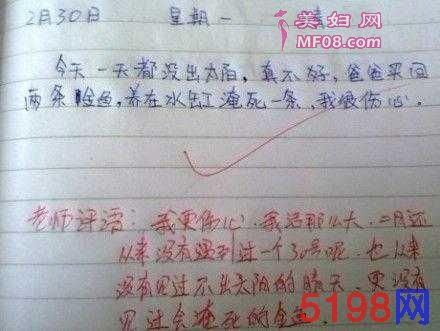 美妇网
MF08.com
2月30日 星期一 晴
今天一天都没出太阳,真不好,爸爸买回
两条金鱼,养在水缸淹死一条,我很伤心。
老师评语:我更伤心,我活那么大,二月还
从来没有遇到过一个30号呢,也从来
没有见过不出太阳的晴天,更没有
见过会淹死的金鱼。
5198网